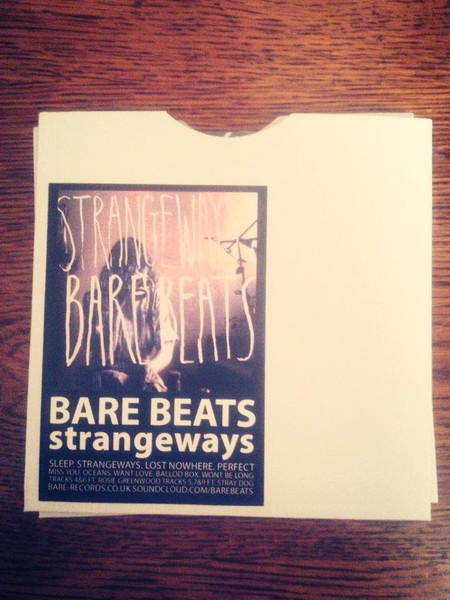 STRANGEWAY
BARE BEATS
BARE BEATS
strangeways
SLEEP. STRANGEWAYS. LOST NOWHERE. PERFECT
MISS YOU. OCEANS. WANT LOVE. BALLOD BOX. WONT BE LONG
TRACKS 4&6 FT. ROSIE GREENWOOD TRACKS 5,7&9 FT. STRAY DOG
BARE-RECORDS.CO.UK SOUNDCLOUD.COM/BAREBEATS